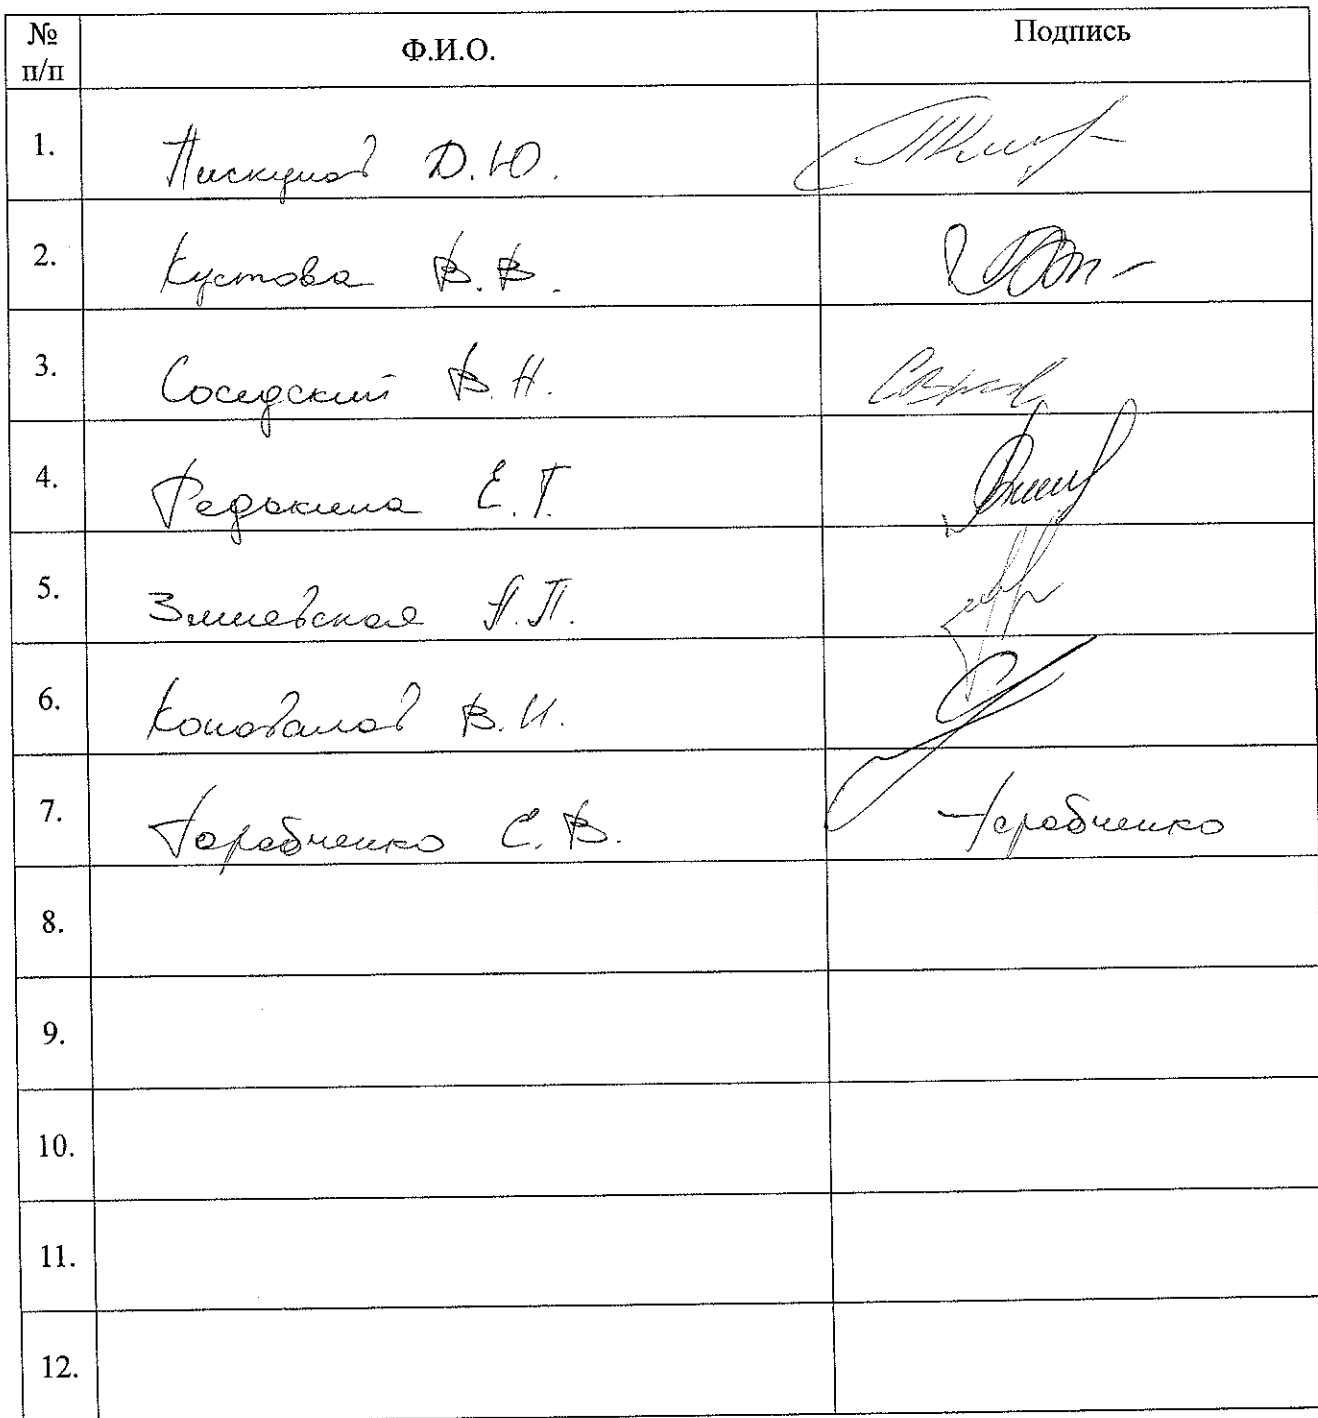 № п/п Ф.И.О. Подпись
1. Пискунов Д.Ю.
2. Кустова В.В.
3. Соседский В.Н.
4. Редькина Е.Г.
5. Змиевская А.П.
6. Коновалов В.И.
7. Тарабченко С.В. Тарабченко
8.
9.
10.
11.
12.